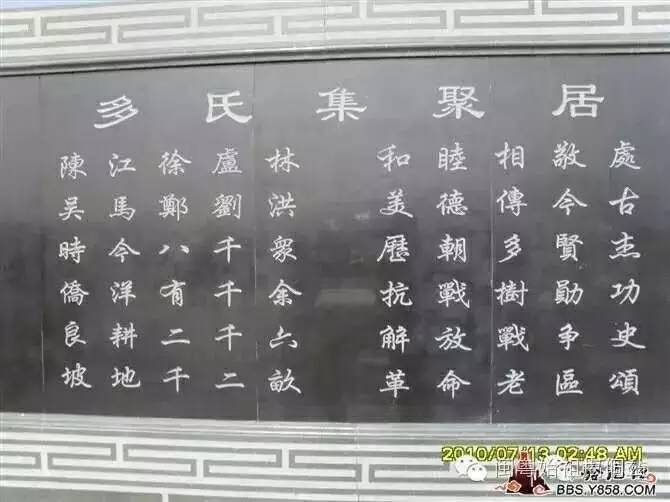 多氏集聚居
陳江徐盧林
吳馬鄭劉洪
時今八千眾
僑洋有千余
良耕二千六
坡地千二畝
和睦相敬處
美德傳今古
歷朝多賢杰
抗戰樹勛功
解放戰爭史
革命老區頌
2010/07/13 02:48 AM
BBS.Y858.COM